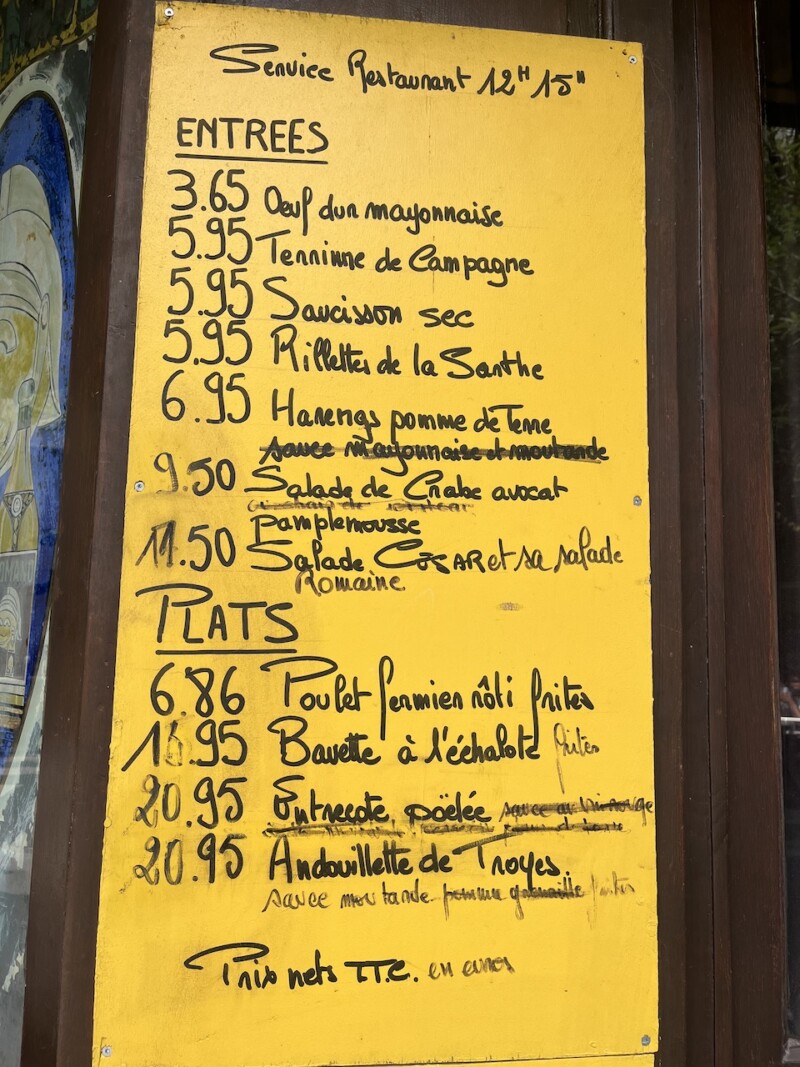 Service Restaurant 12H 15H
ENTREES
3.65 Oeuf dur mayonnaise
5.95 Terrinne de Campagne
5.95 Saucisson sec
5.95 Rillettes de la Sarthe
6.95 Harengs pomme de Terre
sauce mayonnaise et moutarde
9.50 Salade de Crabe avocat
pamplemousse
11.50 Salade CéSAR et sa salade
Romaine.
PLATS
6.86 Poulet fermier rôti frites
16.95 Bavette à l'échalote frites
20.95 Entrecote poëlée sauce au vin rouge
20.95 Andouillette de Troyes.
sauce moutarde pomme grenaille frites
Prix nets TT.C. en euros